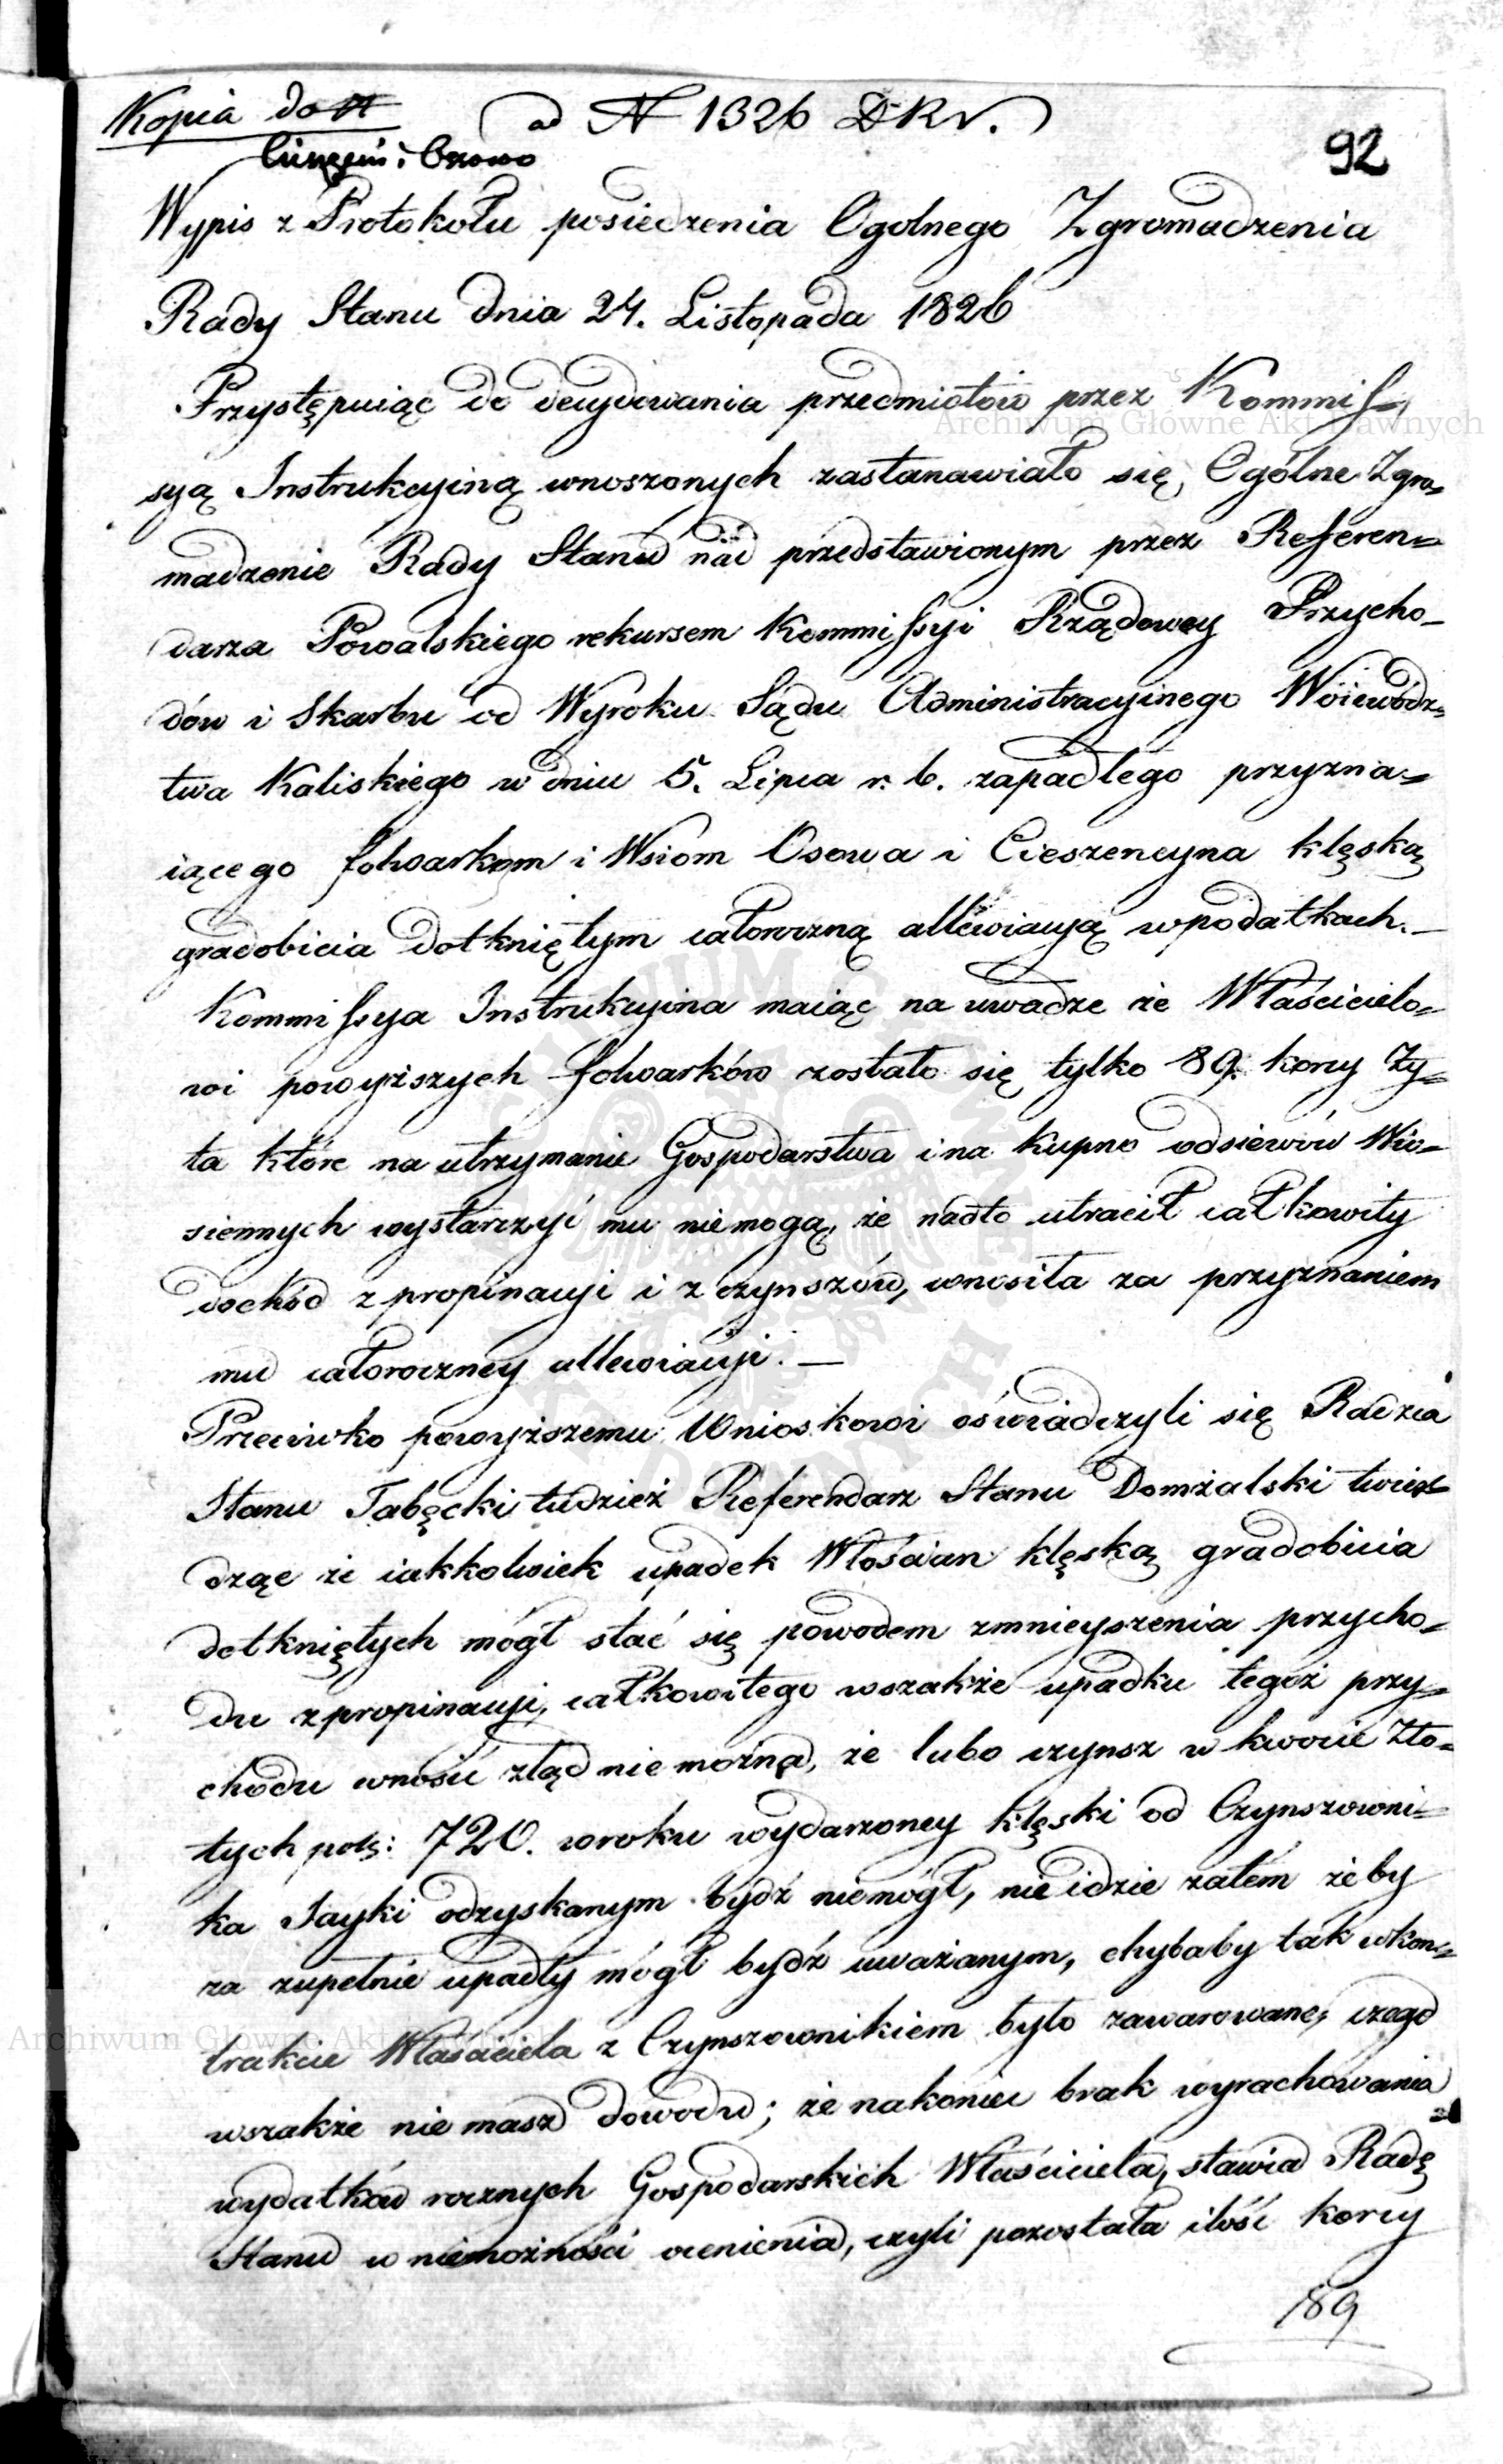 Kopia do
ad N 1326 DKR.
92
Cieszęcin i Osowo
Wypis z Protokołu posiedzenia Ogolnego Zgromadzenia
Rady Stanu dnia 24. Listopada 1826
Przystępuiąc do decydowania przedmiotów przez Kommis„
syą Instrukcyiną wnoszonych zastanawiało się, Ogólne Zgro„
madzenie Rady Stanu nad przedstawionym przez Referen„
darza Powalskiego rekursem Kommissyi Rządowey Przycho„
dów i Skarbu od Wyroku Sądu Administracyinego Woiewódz„
twa Kaliskiego w dniu 5. Lipca r. b. zapadłego przyzna„
iącego folwarkom i Wsiom Osowa i Cieszencyna klęską
gradobicia dotkniętym całoroczną allewiacyą w podatkach. —
Kommissya Instrukcyina maiąc na uwadze że Właścicielo„
wi powyższych folwarków zostało się tylko 89. korcy Ży„
ta które na utrzymanie Gospodarstwa i na kupno odsiewów Wio„
siennych wystarczyć mu niemogą, że nadto utracił całkowity
dochód z propinacyi i z czynszów, wnosiła za przyznaniem
mu całoroczney allewiacyi. —
Przeciwko powyższemu Wnioskowi oświadczyli się Radzca
Stanu Tabęcki tudzież Referendarz Stanu Domżalski twier„
dząc że iakkolwiek upadek Włościan klęską gradobicia
dotkniętych mógł stać się powodem zmnieyszenia przycho„
du z propinacyi, całkowitego wszakże upadku tegoż przy„
chodu wnosić ztąd nie można, że lubo czynsz w kwocie Zło„
tych pols: 720. w roku wydarzoney klęski od Czynszowni„
ka Jayki odzyskanym bydź niemógł, nie idzie zatém żeby
za zupełnie upadły mógł bydź uważanym, chybaby tak w kon„
trakcie Właściciela z Czynszownikiem było zawarowane, czego
wszakże nie masz dowodu; że nakoniec brak wyrachowania
wydatków rocznych Gospodarskich Właściciela, stawia Radę
Stanu w niemożności ocenienia, czyli pozostała ilość korcy
89
Archiwum Główne Akt Dawnych
Archiwum Główne Akt Dawnych
ARCHIWUM GŁÓWNE AKT DAWNYCH